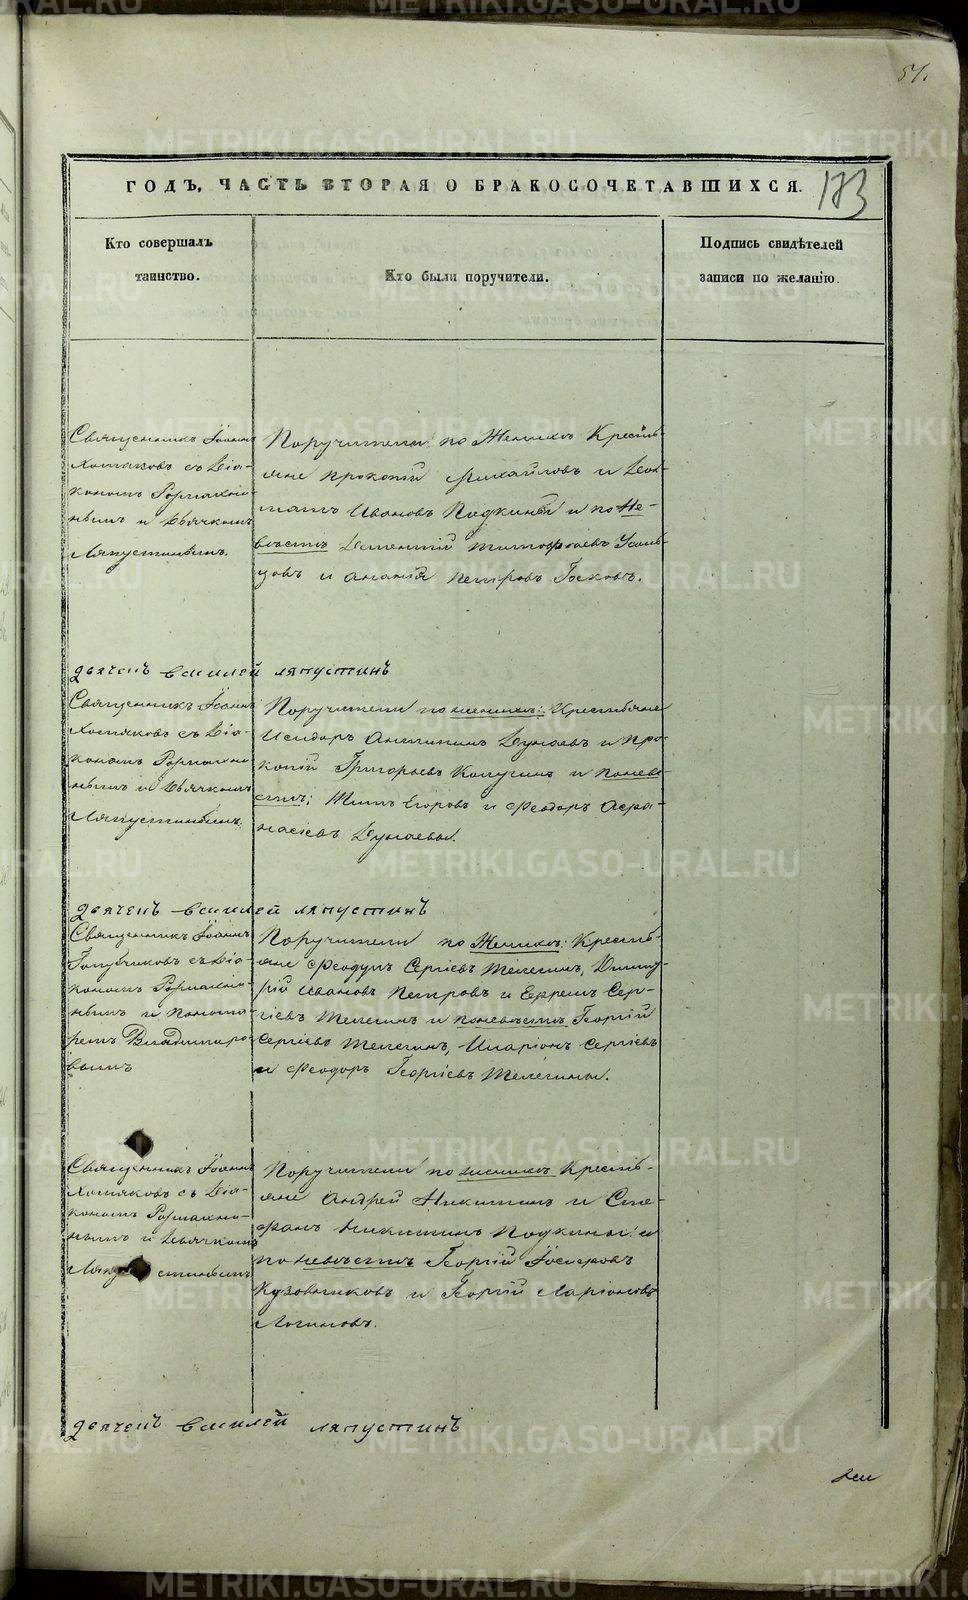 51.
ГОДЪ, ЧАСТЬ ВТОРАЯ О БРАКОСОЧЕТАВШИХСЯ.
173
Кто совершалъ
таинство.
Кто были поручители.
Подпись свидѣтелей
записи по желанію.
Священникъ Іоаннъ
Хомяковъ съ Діа-
кономъ
и Дьячкомъ
Ляпустинымъ.
Поручители: по Женихѣ Кресть-
яне Прокопій Михайловъ и Леон-
Ивановъ и по Не-
вѣстѣ Дементій Тимофѣевъ
и Ананія Петровъ
Дьячекъ Василей Ляпустинъ
Священникъ Іоаннъ
Хомяковъ съ Діа-
кономъ
и Дьячкомъ
Ляпустинымъ.
Поручители по женихѣ: Крестьяне
Исидоръ Антипинъ Дунаевъ и Про-
копій Григорьевъ и по неве-
стѣ: Титъ Егоровъ и Феодоръ Афа-
насіевъ Дунаевы.
Дьячекъ Василей Ляпустинъ
Священникъ Іоаннъ
Голубчиковъ съ Діа-
кономъ
и Понома-
ремъ Владиміро-
вымъ
Поручители по Женихѣ: Кресть-
яне Феодулъ Сергіевъ Телегинъ, Дмит-
рій Ивановъ Петровъ и Ефремъ Сер-
гіевъ Телегинъ и по невѣстѣ Георгій
Сергіевъ Телегинъ, Иларіонъ Сергіевъ
и Феодоръ Георгіевъ Телегины.
Священникъ Іоаннъ
Хомяковъ съ Діа-
кономъ
и Дьячкомъ
Поручители по женихѣ Кресть-
яне Андрей Никитинъ и Сте-
фанъ Никитинъ и
по невѣстѣ Георгій Іосифовъ
Кузовниковъ и Георгій Ларіоновъ
Логиновъ.
Дьячекъ Василей Ляпустинъ